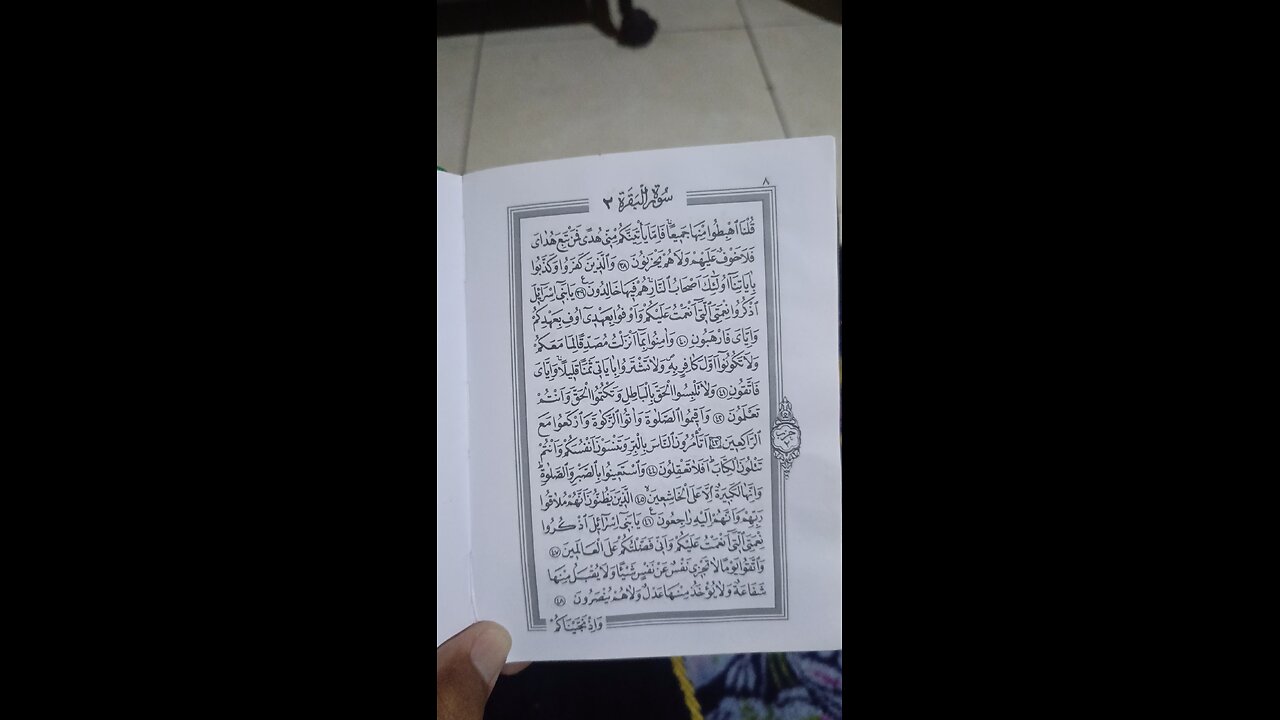 ٨
سُورَةُ الْبَقَرَةِ ٢
قُلْنَا اهْبِطُوا مِنْهَا جَمِيعًا فَاِمَّا يَأْتِيَنَّكُمْ مِنّ۪ى هُدًى فَمَنْ تَبِعَ هُدَاىَ
فَلَا خَوْفٌ عَلَيْهِمْ وَلَا هُمْ يَحْزَنُونَ ٣٨ وَالَّذ۪ينَ كَفَرُوا وَكَذَّبُوا
بِاٰيَاتِنَا اُولٰٓئِكَ اَصْحَابُ النَّارِ هُمْ ف۪يهَا خَالِدُونَ ٣٩ يَا بَن۪ٓى اِسْرَٓائ۪لَ
اذْكُرُوا نِعْمَتِىَ الَّت۪ٓى اَنْعَمْتُ عَلَيْكُمْ وَاَوْفُوا بِعَهْد۪ٓى اُوفِ بِعَهْدِكُمْ
وَاِيَّاىَ فَارْهَبُونِ ٤٠ وَاٰمِنُوا بِمَٓا اَنْزَلْتُ مُصَدِّقًا لِمَا مَعَكُمْ
وَلَا تَكُونُٓوا اَوَّلَ كَافِرٍ بِه۪ وَلَا تَشْتَرُوا بِاٰيَات۪ى ثَمَنًا قَل۪يلًا وَاِيَّاىَ
فَاتَّقُونِ ٤١ وَلَا تَلْبِسُوا الْحَقَّ بِالْبَاطِلِ وَتَكْتُمُوا الْحَقَّ وَاَنْتُمْ
تَعْلَمُونَ ٤٢ وَاَق۪يمُوا الصَّلٰوةَ وَاٰتُوا الزَّكٰوةَ وَارْكَعُوا مَعَ
الرَّاكِع۪ينَ ٤٣ اَتَأْمُرُونَ النَّاسَ بِالْبِرِّ وَتَنْسَوْنَ اَنْفُسَكُمْ وَاَنْتُمْ
تَتْلُونَ الْكِتَابَ اَفَلَا تَعْقِلُونَ ٤٤ وَاسْتَع۪ينُوا بِالصَّبْرِ وَالصَّلٰوةِ
وَاِنَّهَا لَكَب۪يرَةٌ اِلَّا عَلَى الْخَاشِع۪ينَ ٤٥ الَّذ۪ينَ يَظُنُّونَ اَنَّهُمْ مُلَاقُوا
رَبِّهِمْ وَاَنَّهُمْ اِلَيْهِ رَاجِعُونَ ٤٦ يَا بَن۪ٓى اِسْرَٓائ۪لَ اذْكُرُوا
نِعْمَتِىَ الَّت۪ٓى اَنْعَمْتُ عَلَيْكُمْ وَاَنّ۪ى فَضَّلْتُكُمْ عَلَى الْعَالَم۪ينَ ٤٧
وَاتَّقُوا يَوْمًا لَا تَجْز۪ى نَفْسٌ عَنْ نَفْسٍ شَيْئًا وَلَا يُقْبَلُ مِنْهَا
شَفَاعَةٌ وَلَا يُؤْخَذُ مِنْهَا عَدْلٌ وَلَا هُمْ يُنْصَرُونَ ٤٨
وَاِذْ نَجَّيْنَاكُمْ